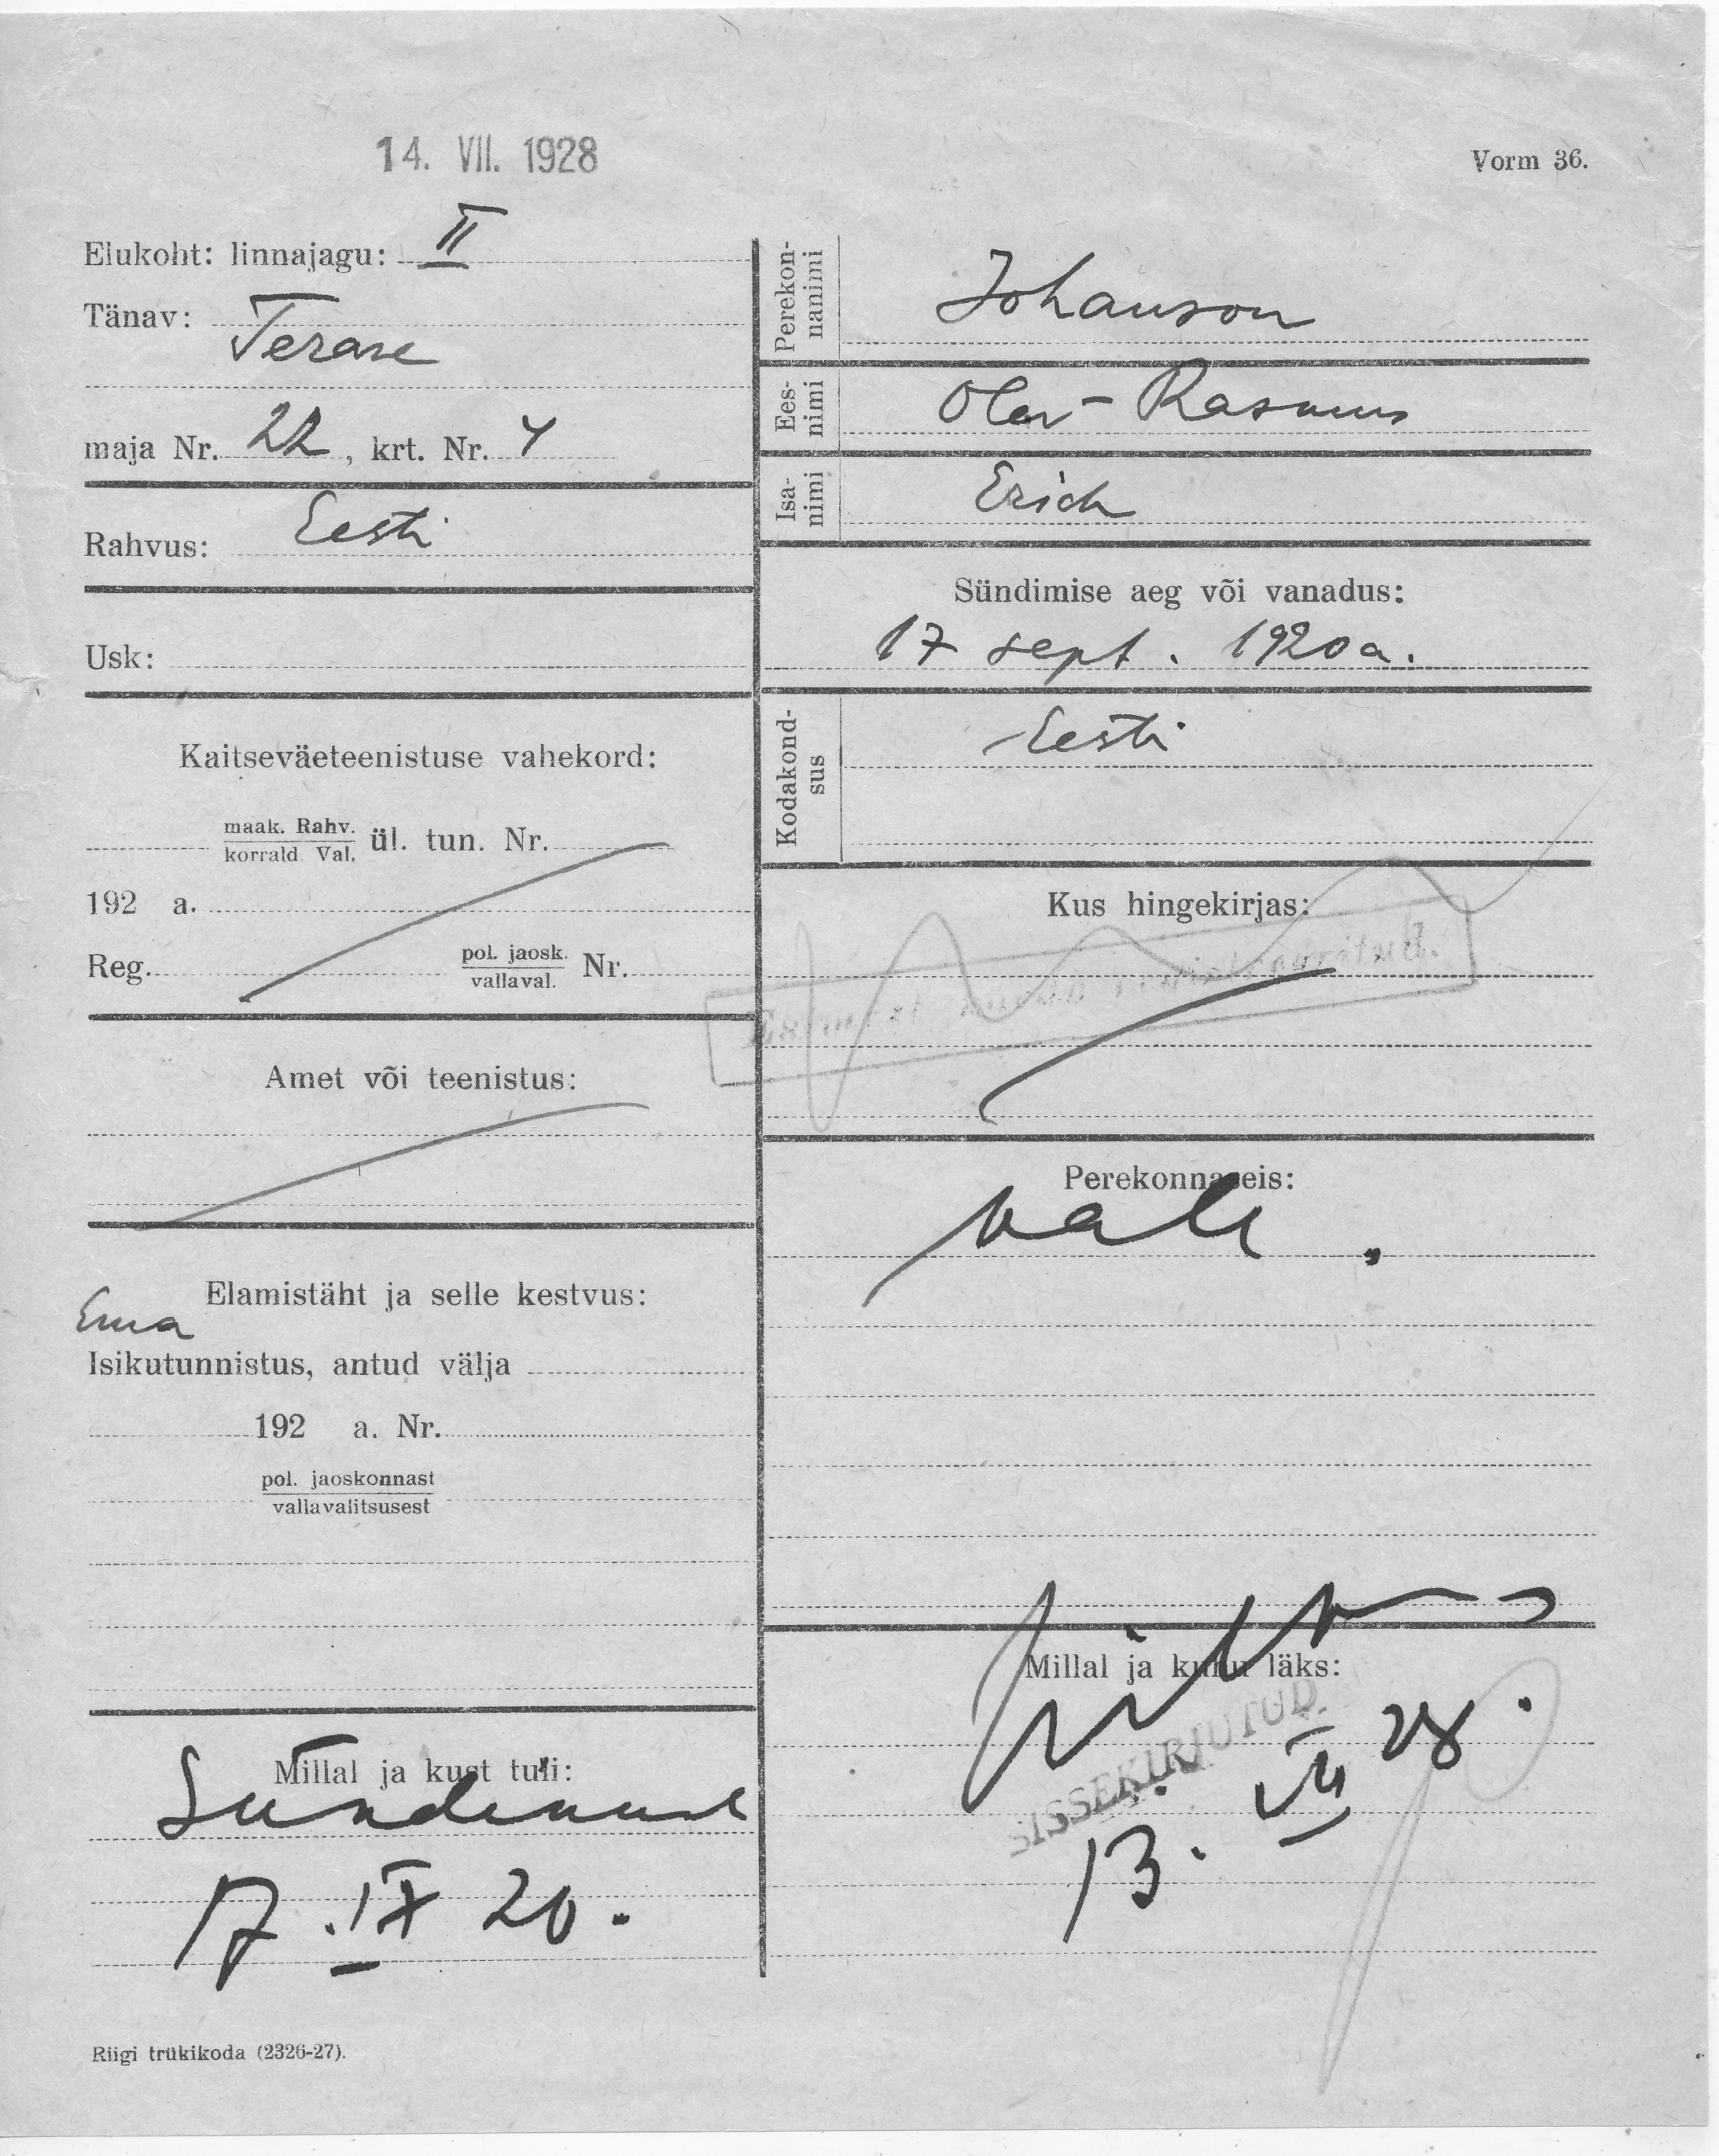 14. VII. 1928
Vorm 36.
Elukoht: linnajagu: II
Tänav:
Terase
maja Nr. 22, krt. Nr. 4
Rahvus: Eesti
Usk:
Kaitseväeteenistuse vahekord:
maak. Rahv.
korrald. Val. ül. tun. Nr.
192 a.
Reg. pol. jaosk. Nr.
vallaval.
Amet või teenistus:
Elamistäht ja selle kestvus:
Ema
Isikutunnistus, antud välja
192 a. Nr.
pol. jaoskonnast
vallavalitsusest
Millal ja kust tuli:
17. IX 20.
Riigi trükikoda (2326-27).
Perekon-
nanimi
Johanson
Ees-
nimi
Olav-Rasmus
Isa-
nimi
Erich
Sündimise aeg või vanadus:
17 sept. 1920 a.
Kodakond-
sus
Eesti
Kus hingekirjas:
Perekonnaseis:
Millal ja kuhu läks:
SISSEKIRJUTUD.
13. VII 28.